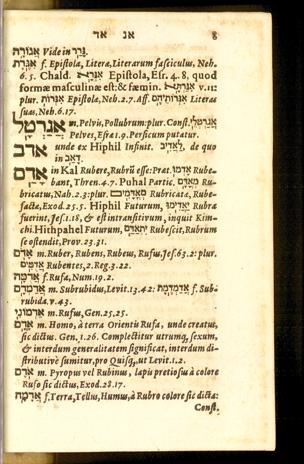 אנ אד 8
אֲגוֹרָה Vide in גָּרַר
אִגֶּרֶת f. Epistola, Literæ, Literarum fasciculus, Neh.
6. 5. Chald. אִגְּרָא Epistola, Esr. 4. 8. quod
formæ masculinæ est: & fæmin. אִגַּרְתָּא v. 11:
plur. אִגְּרוֹת Epistolæ, Neh. 2. 7. Aff. אִגְּרֹתֵיהֶם Literæ
suæ, Neh. 6. 17.
אֲגַרְטָל m. Pelvis, Pollubrum: plur. Const. אֲגַרְטְלֵי
Pelves, Esræ 1. 9. Persicum putatur.
אדב unde ex Hiphil Infinit. לַאֲדִיב, de quo
in דָאַב
אָדַם in Kal Rubere, Rubrū esse: Præt. אָדְמוּ Rube-
bant, Thren. 4. 7. Puhal Partic. מְאָדָּם Ru-
bricatus, Nah. 2. 3: plur. מְאָדָּמִים Rubricata, Rube-
facta, Exod. 25. 5. Hiphil Futurum, יַאְדִּימוּ Rubra
fuerint, Jes. 1. 18, & est intransitivum, inquit Kim-
chi. Hithpahel Futurum, יִתְאַדָּם Rubescit, Rubrum
se ostendit, Prov. 23. 31.
אָדֹם m. Ruber, Rubens, Rubeus, Rufus, Jes. 63. 2: plur.
אֲדֻמִּים Rubentes, 2. Reg. 3. 22.
אֲדֻמָּה f. Rufa, Num. 19. 2.
אֲדַמְדָּם m. Subrubidus, Levit. 13. 42: אֲדַמְדֶּמֶת f. Sub-
rubida. v. 43.
אַדְמוֹנִי m. Rufus, Gen. 25. 25.
אָדָם m. Homo, à terra Orientis Rufa, unde creatus,
sic dictus. Gen. 1. 26. Complectitur utrumq; sexum,
& interdum generalitatem significat, interdum di-
stributivè sumitur, pro Quisq; ut Levit. 1. 2.
אֹדֶם m. Pyropus vel Rubinus, lapis pretiosus à colore
Rufo sic dictus, Exod. 28. 17.
אֲדָמָה f. Terra, Tellus, Humus, à Rubro colore sic dicta:
Const.